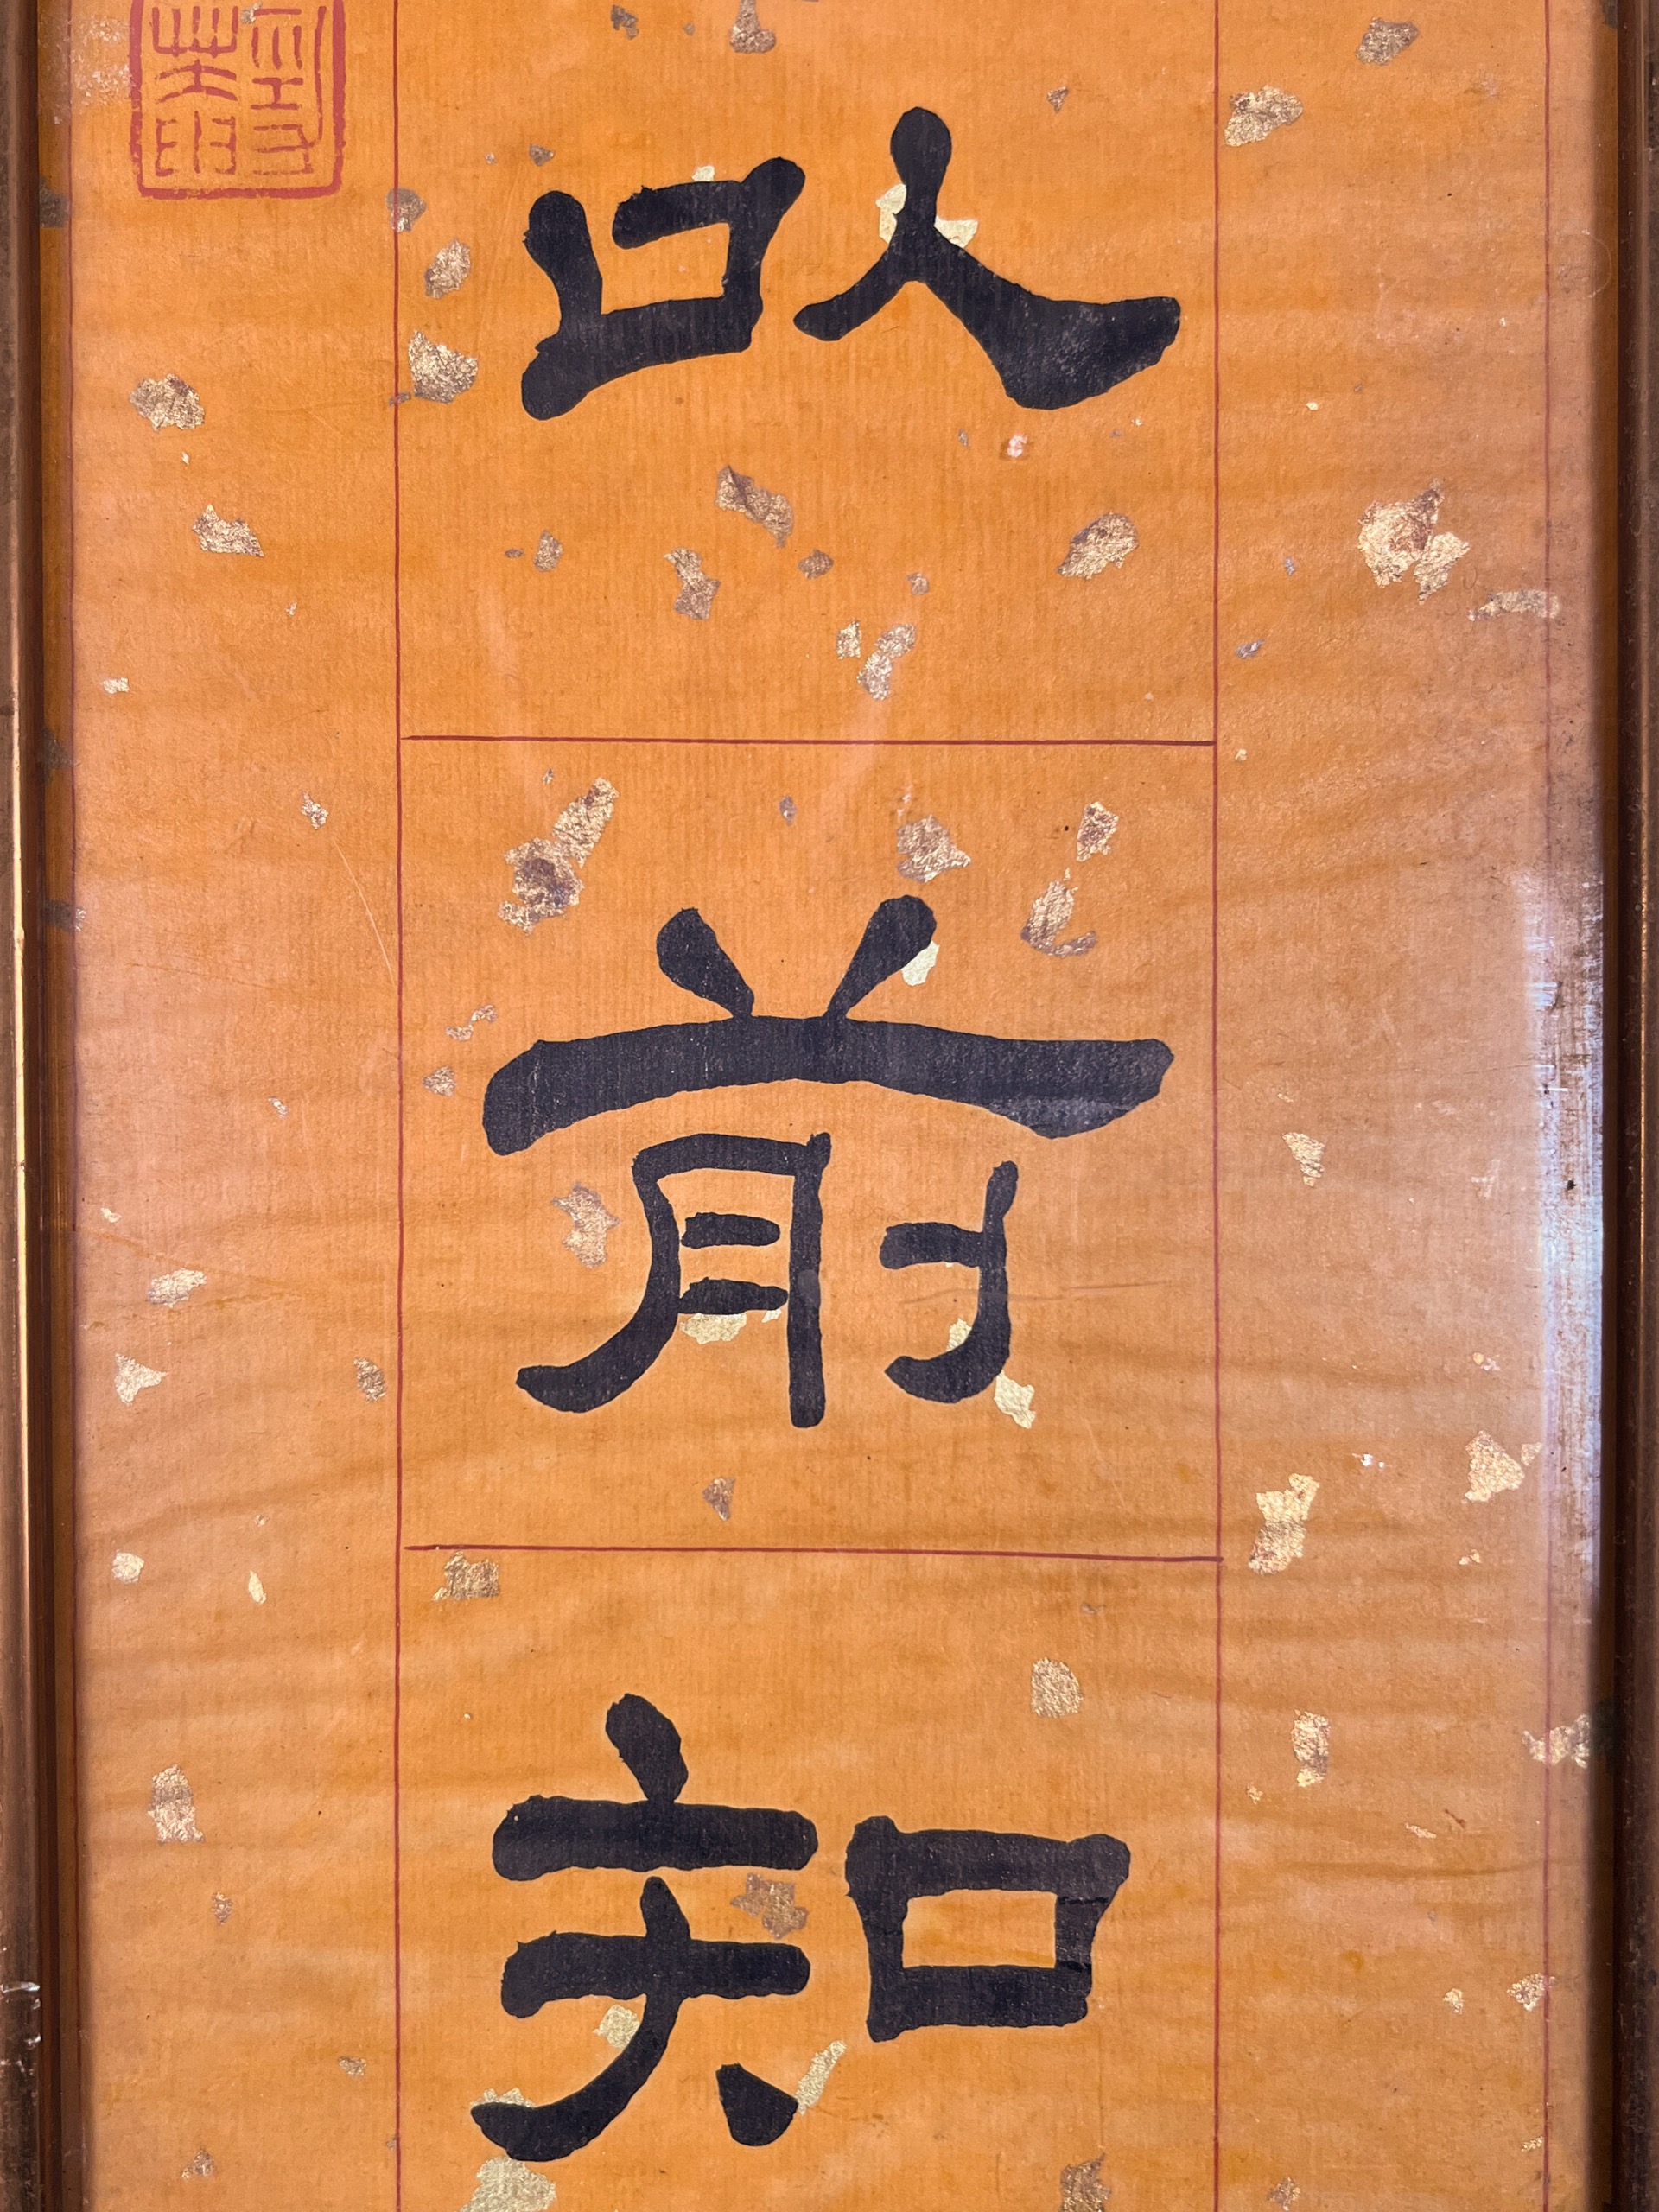 以
前
知